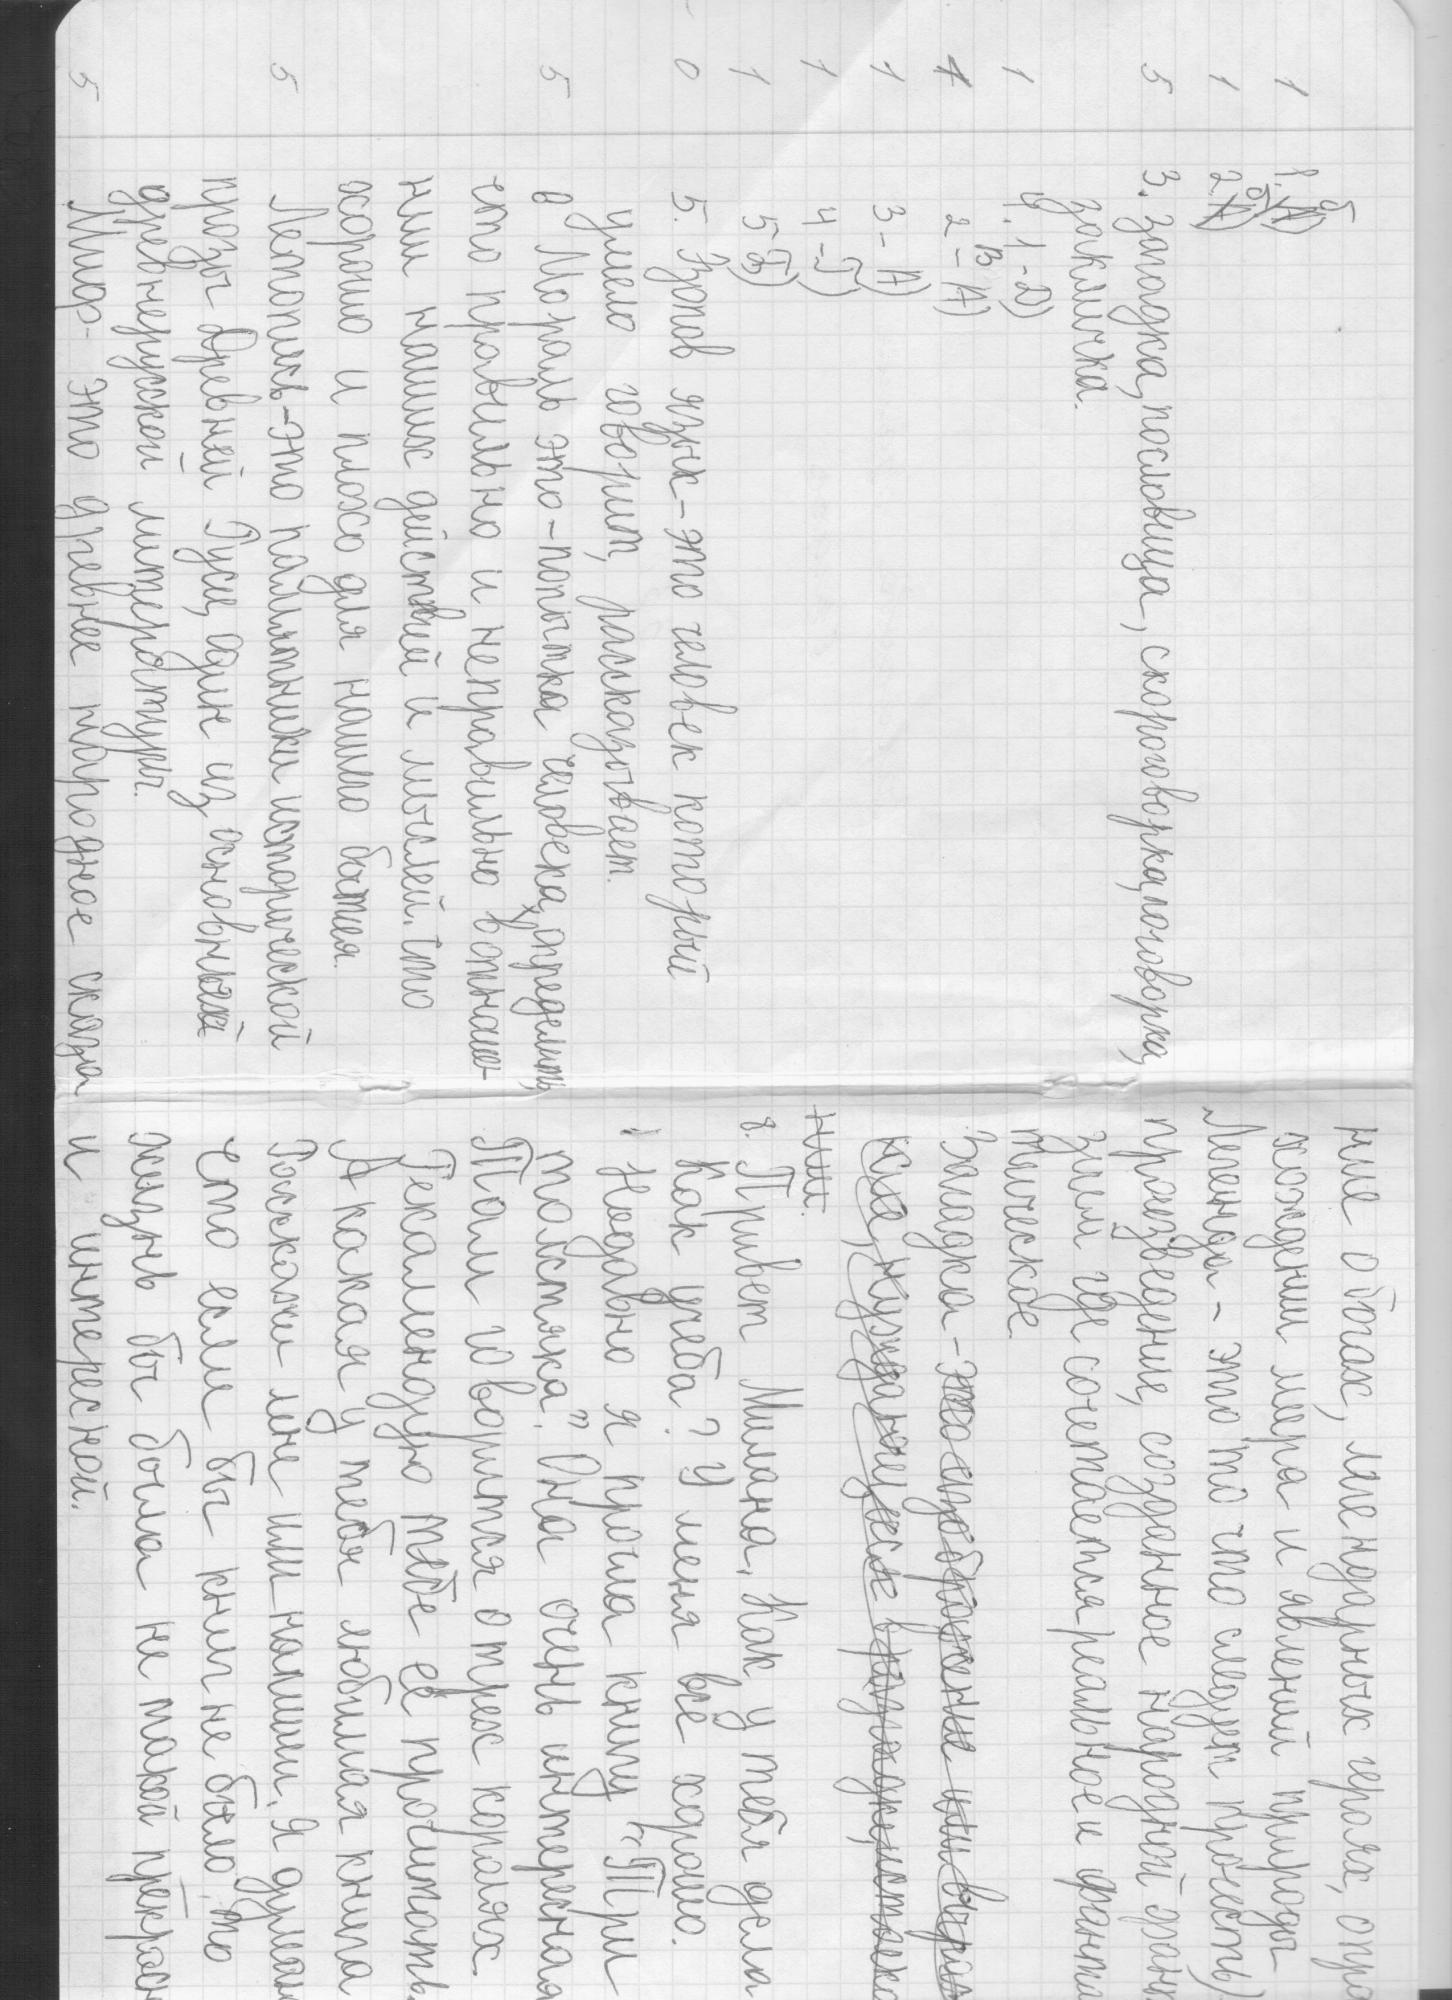 1 1. А) б
1 2. А) б
5 3. загадка, пословица, скороговорка, поговорка,
закличка.
1 4. 1-Д)
1 2-А) В
1 3-А)
1 4-Г)
1 5-Б)
0 5. Эзопов язык-это человек который
умело говорит, расказывает.
5 6 Мораль это-попытка человека, определить,
что правильно и неправильно в отнаше-
нии наших действий и мыслей. Что
хорошо и плохо для нашго бытея.
5 Летопись-это памлятники исторической
прозы древней Руси, один из основных
древнерусской литературы.
5 Миф- это древнее народное сказа
ние о богах, легендарных героях, опро
хождении мира и явлений природы
Легенда-это то что следует прочесть)
произведение, созданное народной фан
зием где сочетается реальное и фанта
тическое.
Загадка-
нии.
8. Привет Милана, Как у тебя дела
Как учеба? У меня все хорошо.
Недавно я прочла книгу "Три
толстяка". Она очень интересная
Там говорится о трех королях.
Рекамендую тебе её прочитать.
А какая у тебя любимая книга
Расскажи мне или напиши. Я думаю
что если бы книг не было, то
жизнь бы была не такой прекрасн
и интересной.